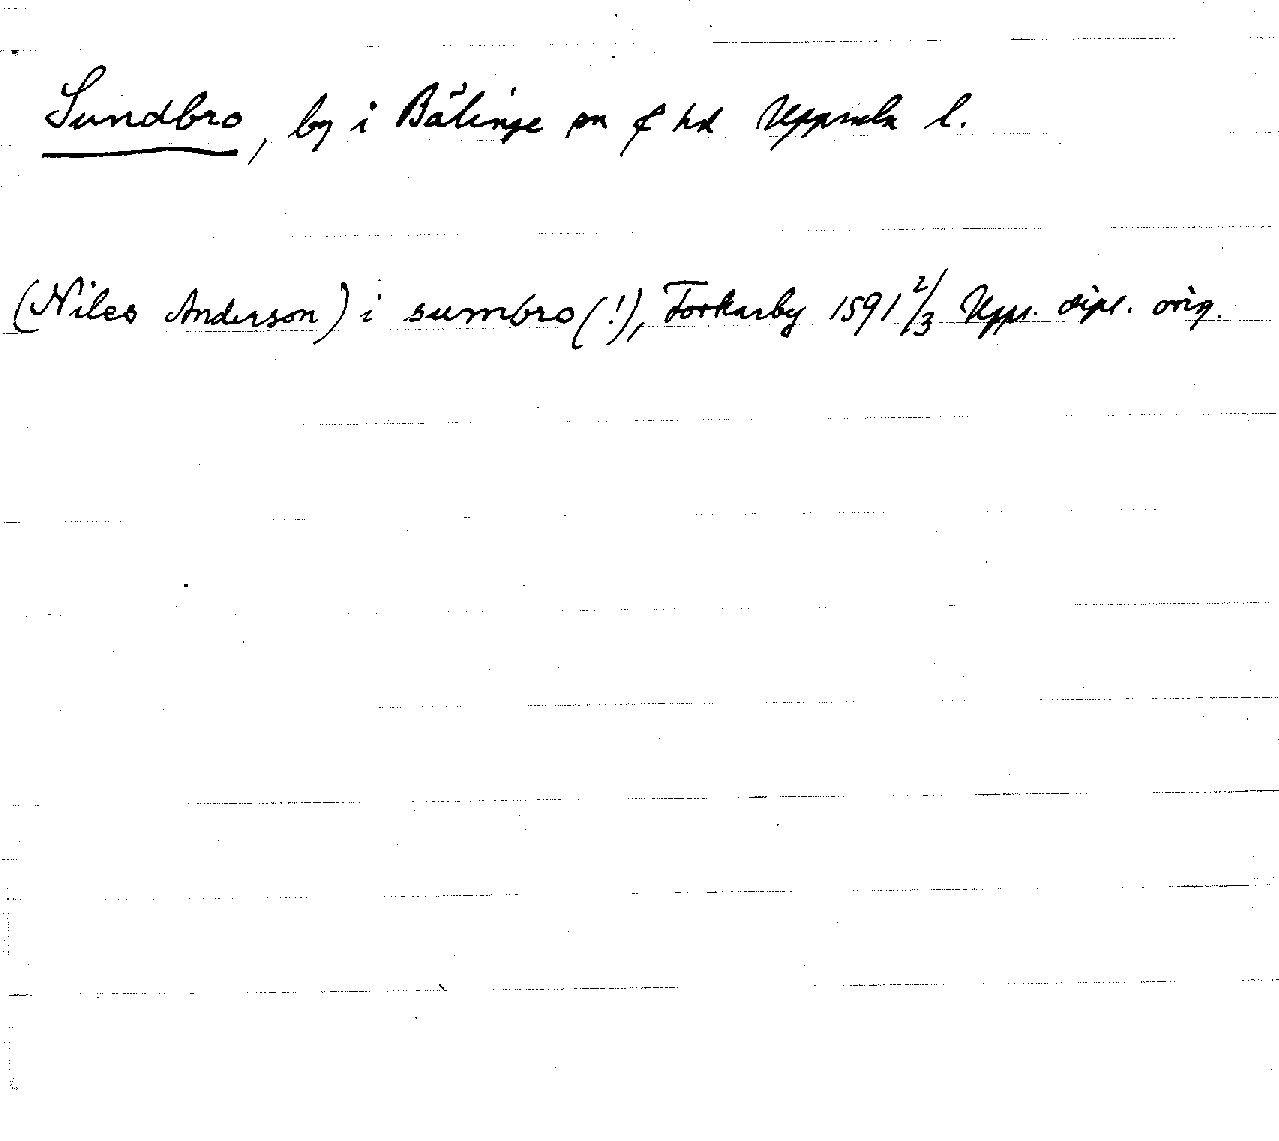 Sundbro, by i Bälinge sn o hd Uppsala l.
(Niles Anderson) i sumbro (!), Forkarby 1591 2/3 Upps. dipl. orig.